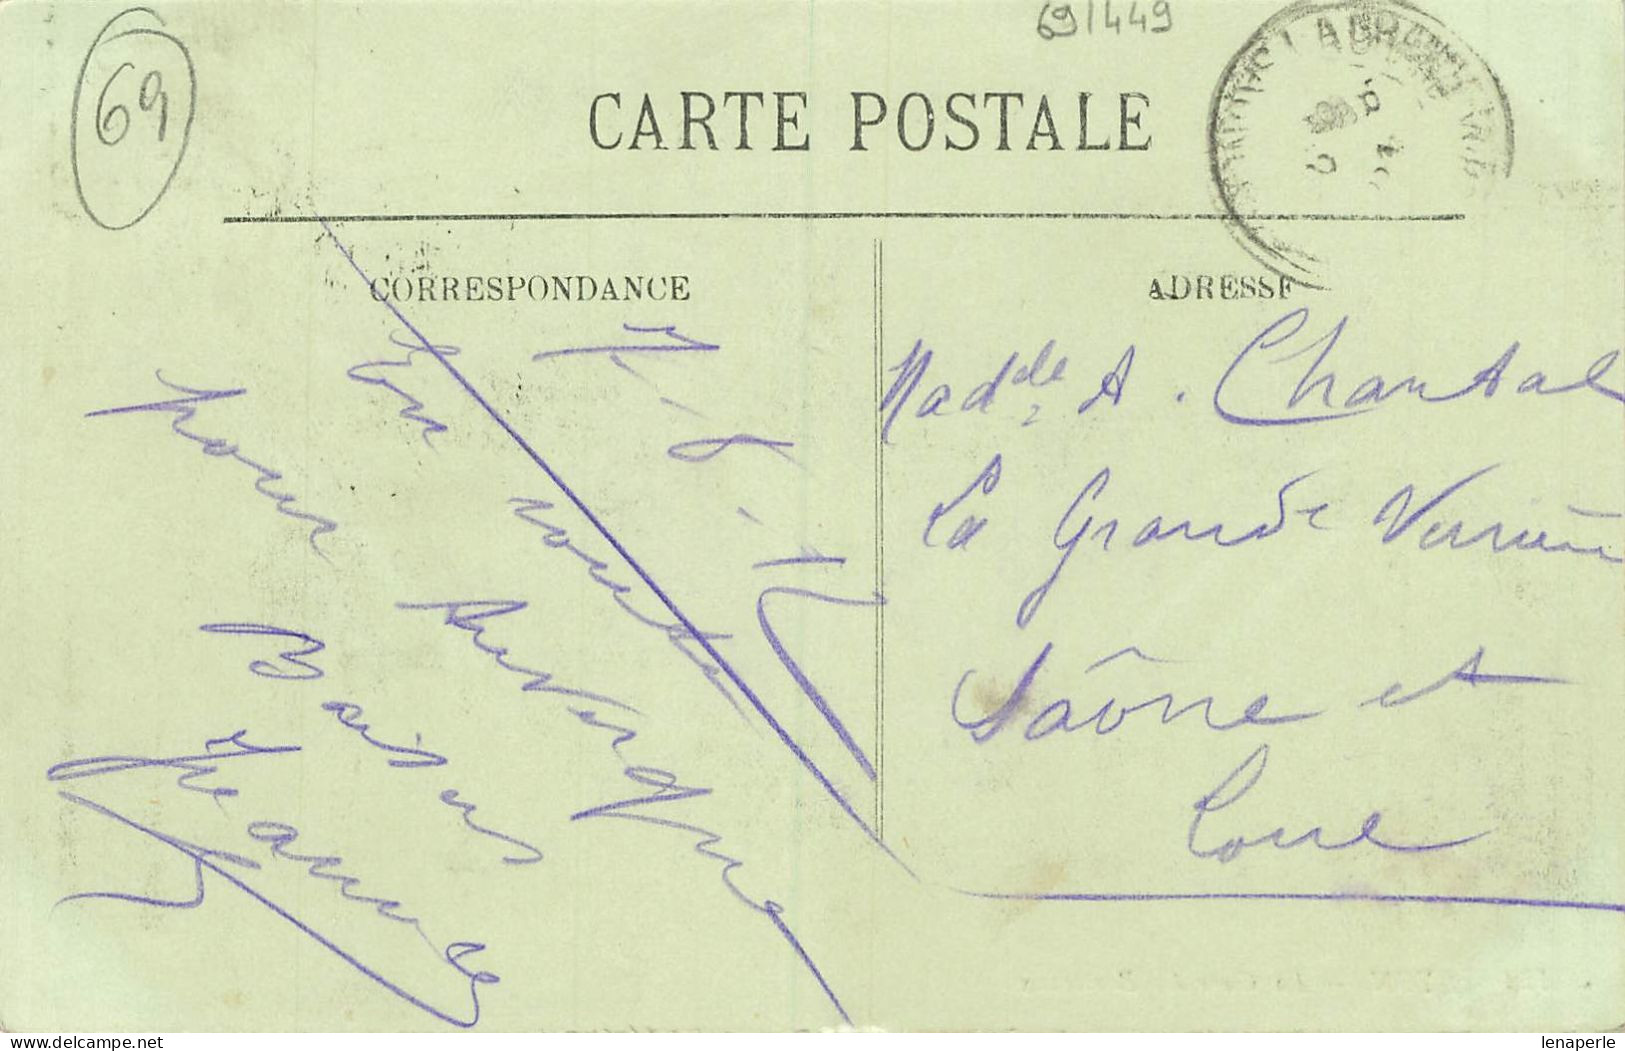 69
69/449
CARTE POSTALE
CORRESPONDANCE
ADRESSE
En route
pour
Auvergne
Baisers
Jeanne
Mad^elle A. Chantal
La Grande Verrière
Saône et
Loire
delcampe.net
lenaperle